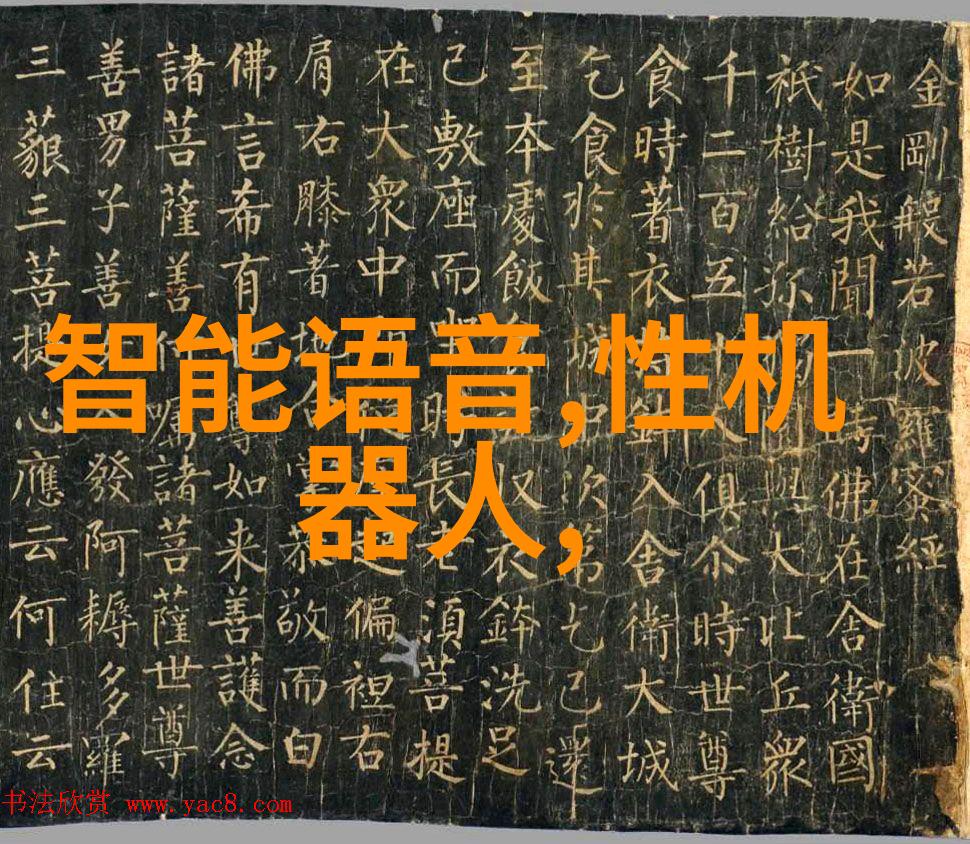 金剛般若波羅蜜經
如是我聞一時佛在舍衛國
祇樹給孤園與大比丘眾
千二百五十人俱尒時世尊
食時著衣入舍衛大城
乞食於其城中次第乞已還
至本處飯收衣鉢洗足
已敷座而坐時長老須菩提
在大眾中起偏袒右
肩右膝著地合掌恭敬而白
佛言希有尊如来善護念
諸菩薩善付嘱諸菩薩世尊
善男子善發阿耨多羅
三藐三菩提心應云何住云
智能语音,性机
器人,
书法欣赏 www.yac8.com